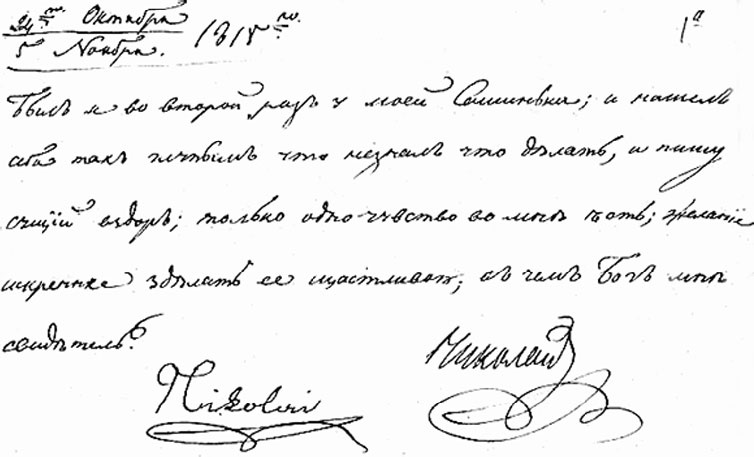 24го Октября 1815го. 1а
5 Ноября.
Былъ я во второй разъ у моей; и нашелъ
себя такъ что незналъ что дѣлать, и пишу
сущїй вздоръ; только одно чувство во мнѣ есть; желанїе
искренне здѣлать ее щастливою, въ чемъ Богъ мнѣ
свидѣтель.
Nikolai Николай